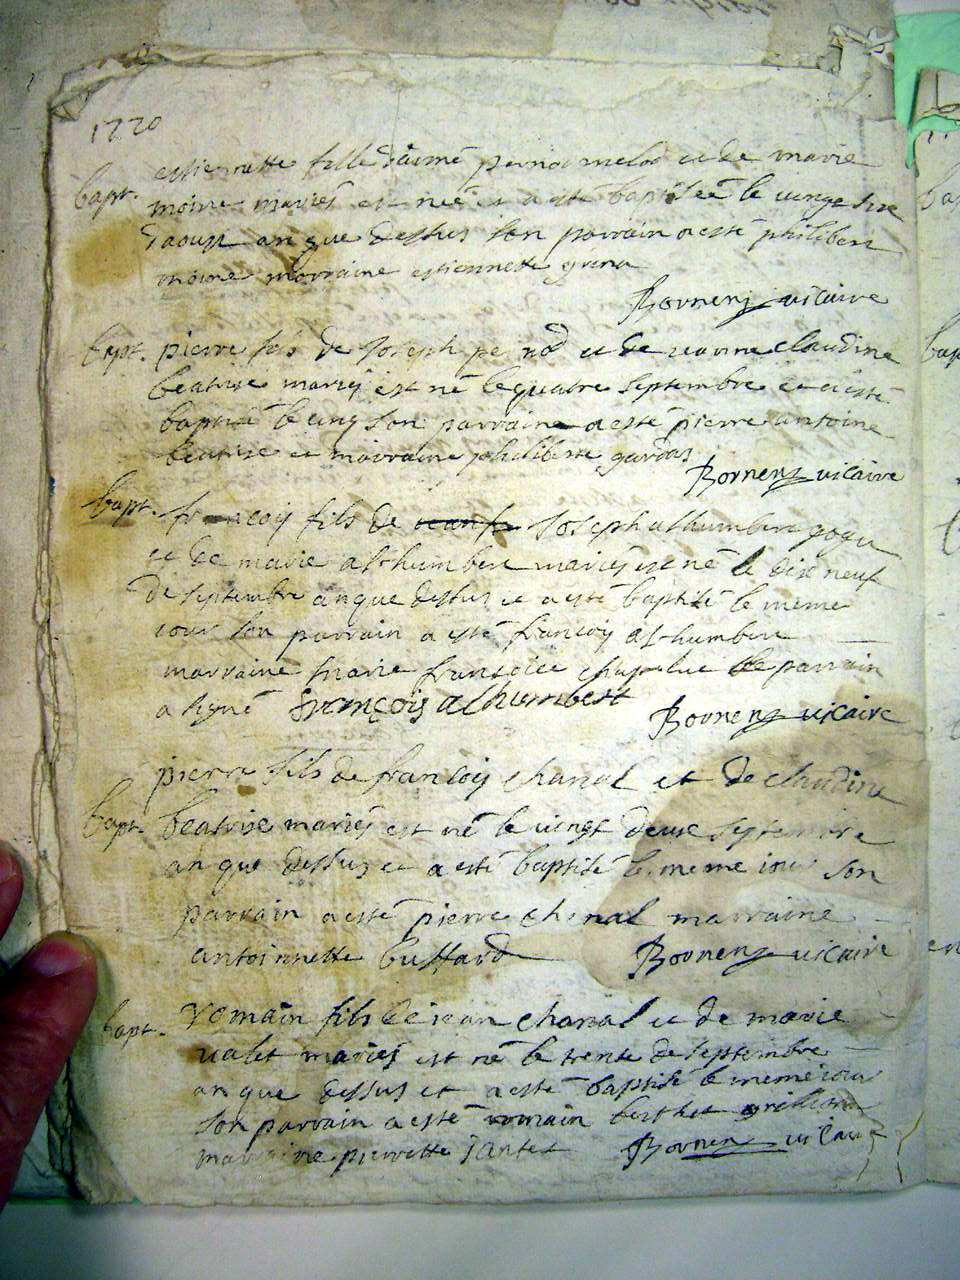 1720
estiennette fille d'aimé pernod melod et de marie
bapt. moine mariés est née et a esté baptisée le vingt sixe
daoust an que dessus son parrain a esté philibert
moine marraine estiennette
Bornenz vicaire
bapt. pierre fils de Joseph pernod et de jeanne claudine
beatrise mariés est né le quatre septembre et a esté
baptisé le cinq son parrain a esté pierre antoine
beatrise et marraine philiberte
Bornenz vicaire
bapt. francoy fils de Joseph alhumbert
et de marie alhumbert mariés est né le dix neuf
de septembre an que dessus et a esté baptisé le meme
iour son parrain a esté francoy alhumbert
marraine marie francoise le parrain
a signé françois alhumbert Bornenz vicaire
pierre fils de francois chanal et de claudine
bapt. beatrise mariés est né le vingt deux septembre
an que dessus et a esté baptisé le meme iour son
parrain a esté pierre chanal marraine
antoinnette buffard Bornenz vicaire
bapt. romain fils de iean chanal et de marie
valet mariés est né le trente de septembre
an que dessus et a esté baptisé le meme iour
son parrain a esté romain berthet
marraine pierrette jantet Bornenz vicaire